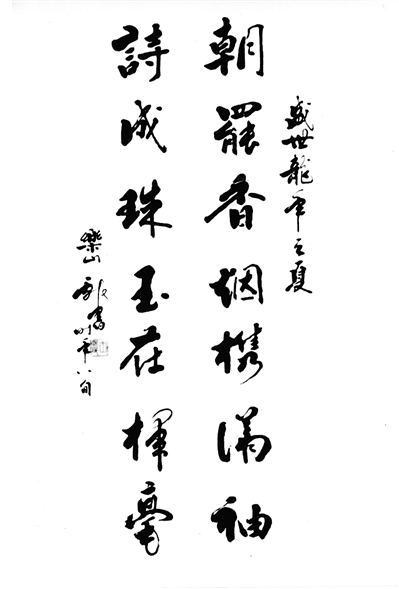 盛世龍年之夏
朝罷香烟携滿袖
詩成珠玉在揮毫
樂山書时年八旬